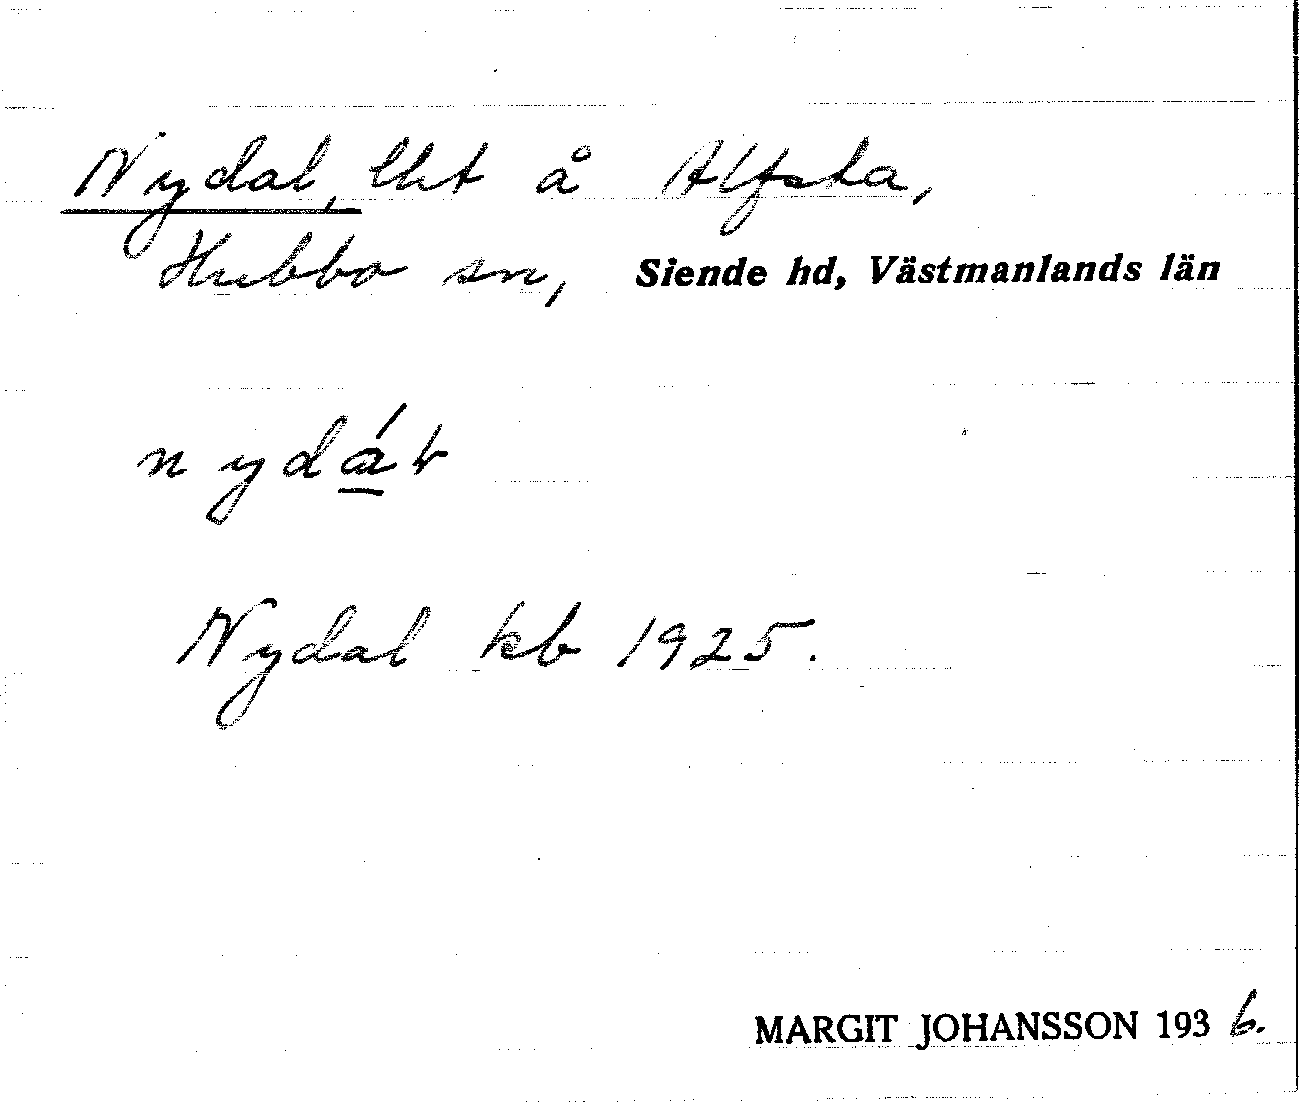 Nydal, lht å Alfsta,
Hubbo sn, Siende hd, Västmanlands län
nydát
Nydal kb 1925.
MARGIT JOHANSSON 1936.